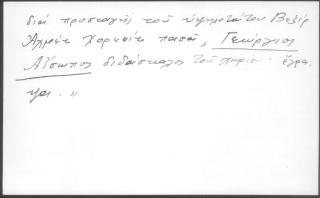 διά προσταγής τοῦ ὑψηλοτάτου Βεζίρ
Ἀχμέτ Χουρσίτ πασσᾶ, Γεώργιος
Αἴσωπος διδάσκαλος τοῦ χωρίου· ἔγρα-
ψα. »